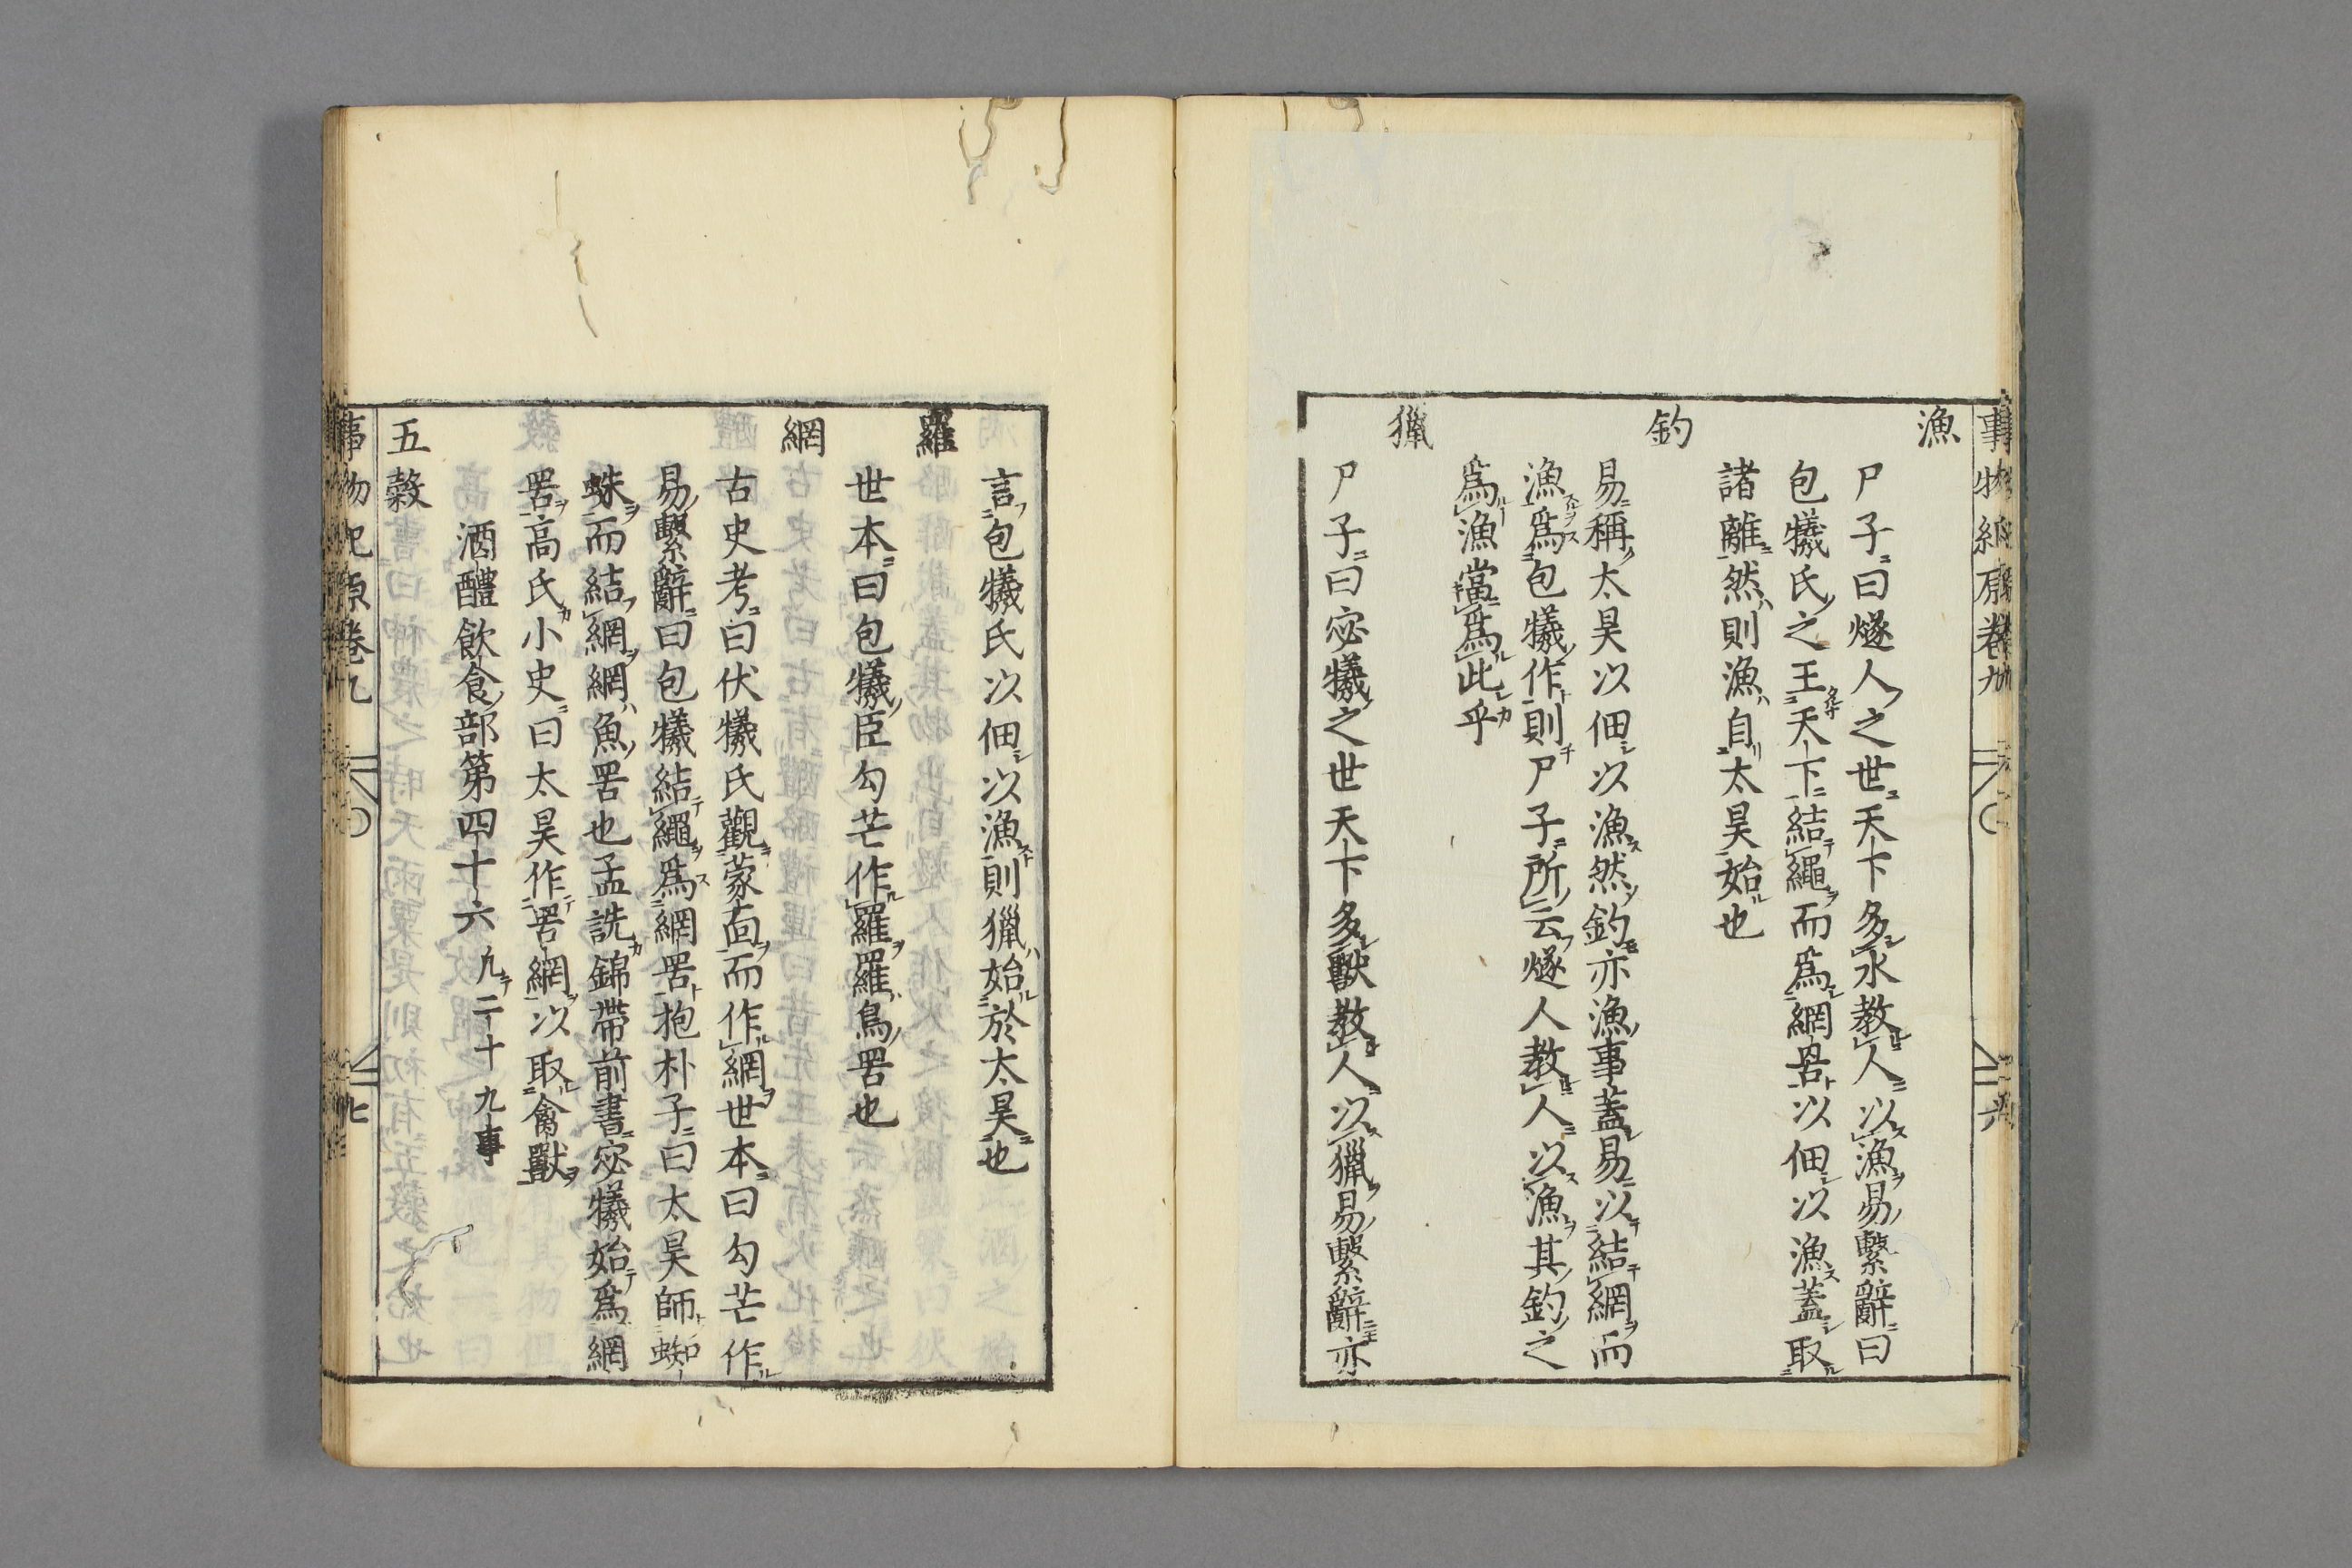 事物紀原卷九
漁
尸子曰燧人之世天下多水教人以漁易繫辭曰
包犧氏之王天下結繩而爲網罟以佃以漁蓋取
諸離然則漁自太昊始也
釣
易稱太昊以佃以漁然釣亦漁事蓋易以結網而
漁爲包犧作則尸子所云燧人教人以漁其釣之
爲漁當爲此乎
獵
尸子曰宓犧之世天下多獸教人以獵易繫辭亦
言包犧氏以佃以漁則獵始於太昊也
羅
世本曰包犧臣勾芒作羅羅鳥罟也
網
古史考曰伏犧氏觀蒙而作網世本曰勾芒作
易繫辭曰包犧結繩爲網罟抱朴子曰太昊師蜘
蛛而結網網魚罟也孟詵錦帶前書宓犧始爲網
罟高氏小史曰太昊作罟網以取禽獸
酒醴飲食部第四十六 凡二十九事
五穀
事物紀原卷九 七